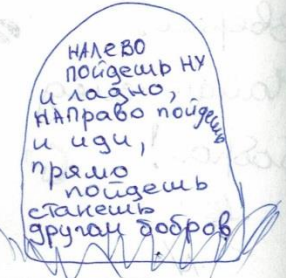 НАЛЕВО
пойдешь ну
и ладно,
НАПраво пойдешь
и иди,
прямо
пойдешь
станешь
другам бобров